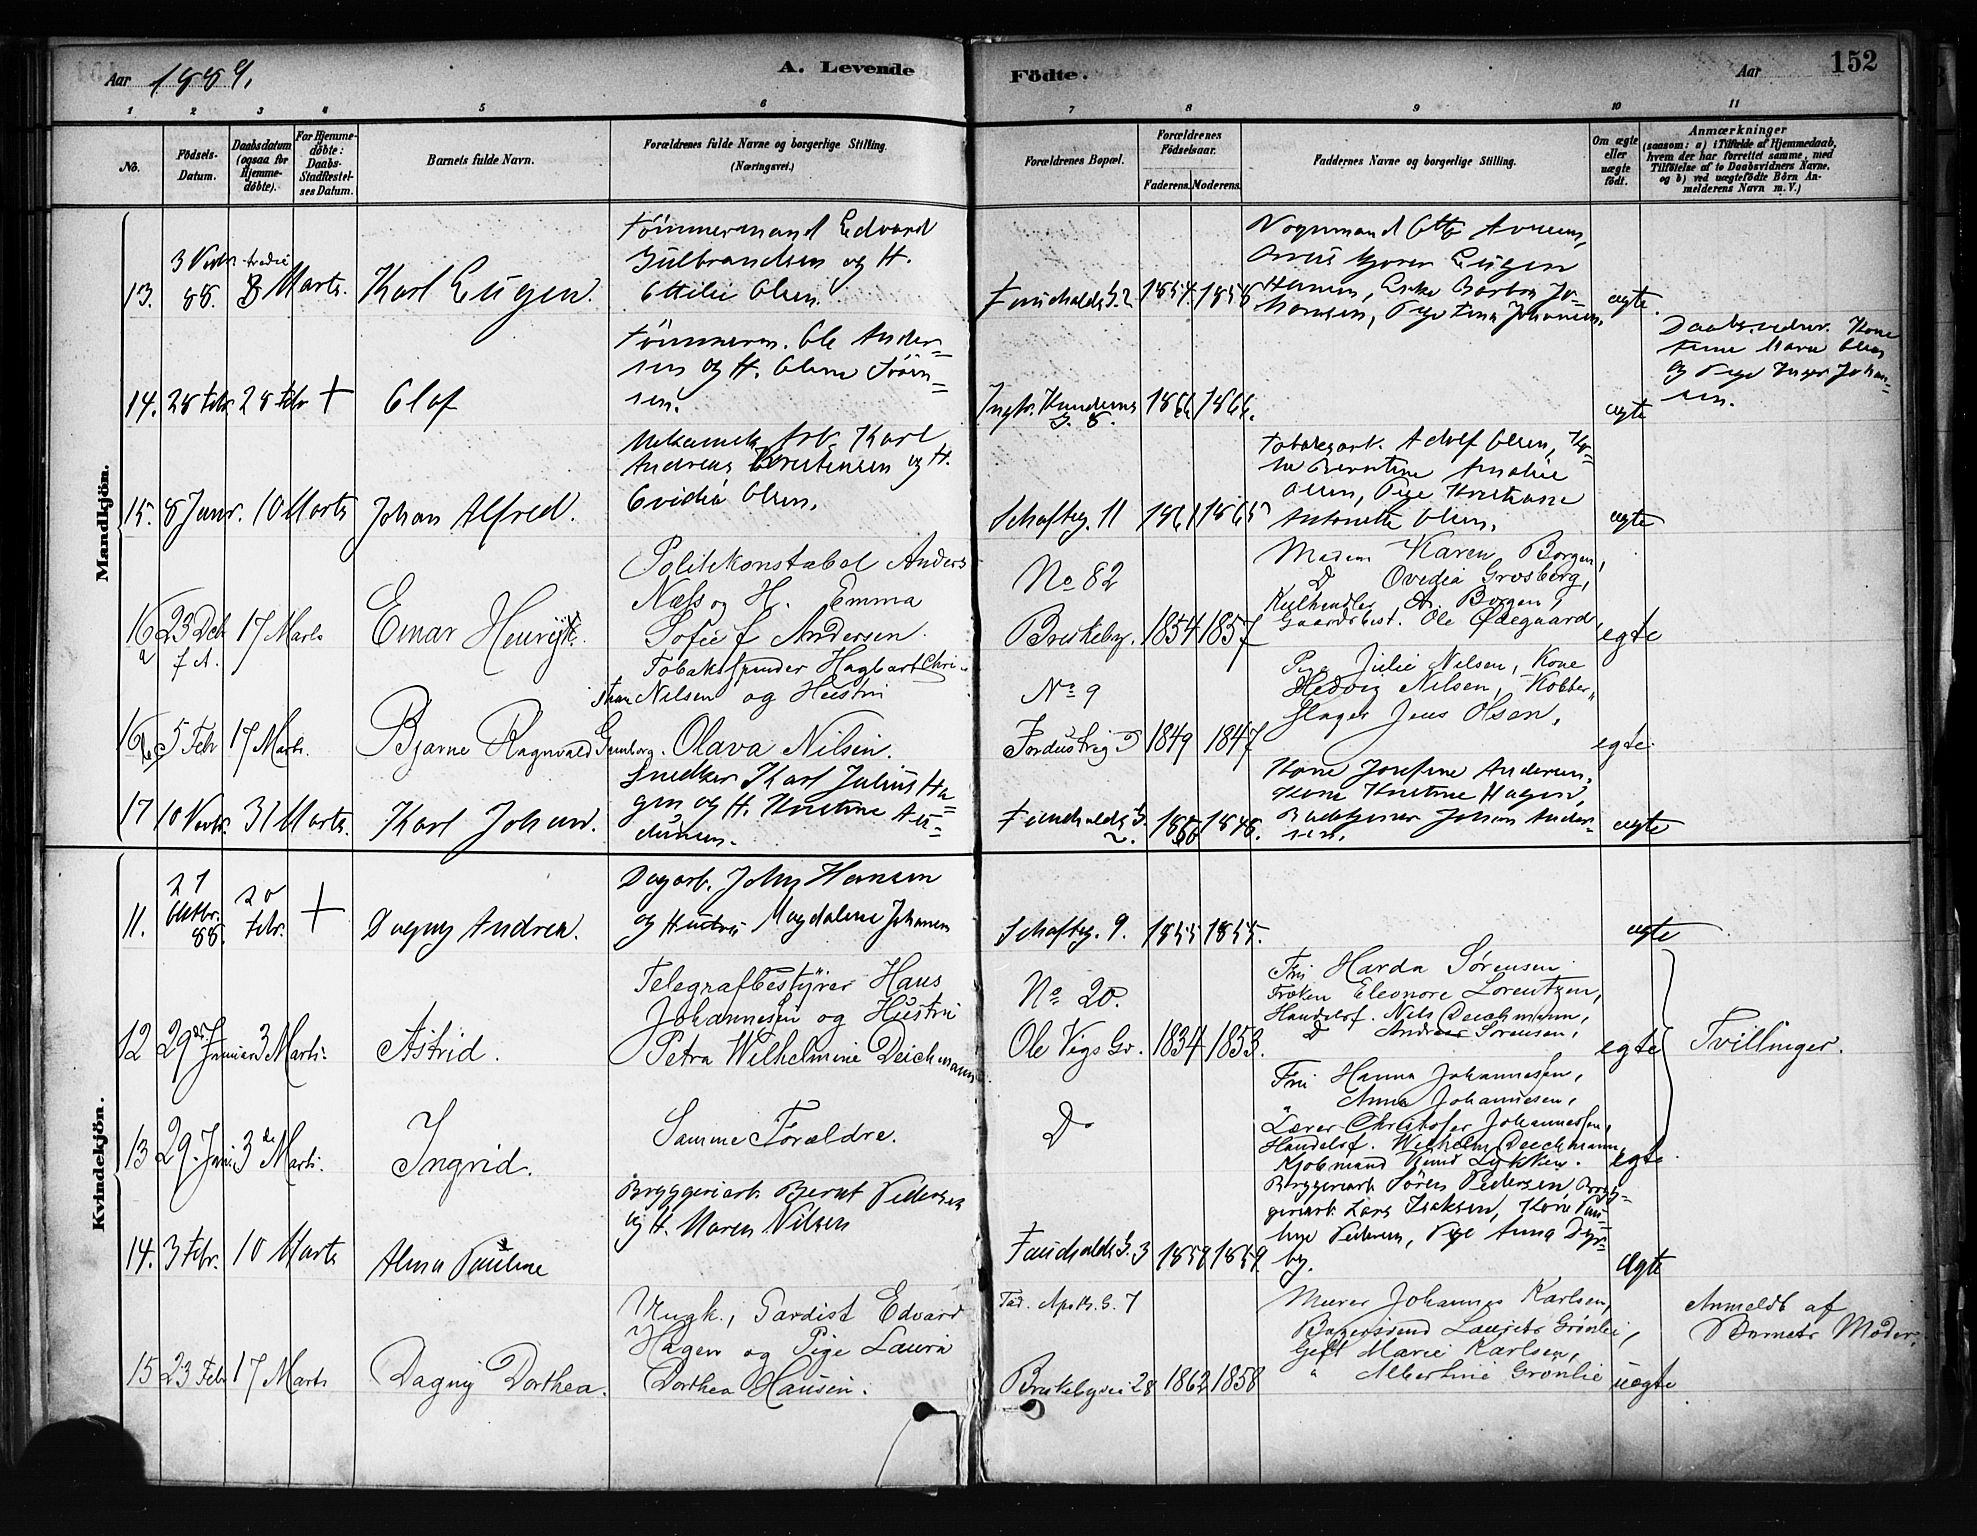 Aar 1889.
A. Levende
Födte.
Aar
152
1 2 3 4 5 6 7 8 9 10 11
No.
Födsels-Datum.
Daabsdatum (ogsaa for Hjemmedöbte).
For Hjemmedöbte: Daabs-Stadfæstelses Datum.
Barnets fulde Navn.
Forældrenes fulde Navne og borgerlige Stilling. (Næringsvei.)
Forældrenes Bopæl.
Forældrenes Födselsaar.
Faderens. Moderens.
Faddernes Navne og borgerlige Stilling.
Om ægte eller uægte födt.
Anmærkninger
(saasom: a) i Tilfælde af Hjemmedaab, hvem der har forrettet samme, med Tilföielse af to Daabsvidners Navne, og b) ved uægtefödte Börn Anmelderens Navn m. V.)
Mandkjön.
13. 88. 3 Marts. Karl Eugen.
Tömmermand Edvard
Gulbrandsen og H.
Ottilie Olsen.
Fauchalds G. 2 1854 1858
ægte.
14. 28 Febr 28 Febr + Olaf
Tömmerm. Ole Ander-
sen og H. Oline Sörn-
sen.
1866 1866.
ægte
Daabsvidner. Kone
og Pige Inger Johan-
sen.
15. 8 Janr. 10 Marts Johan Alfred.
Mekanisk Arb. Karl
Andreas Christensen og H.
Ovidia Olsen.
Schafteg. 11 1861 1865
Tobaksarb. Adolf Olsen, Ko-
ne Berntine Amalie
Olsen, Pige Kristiane
Antonette Olsen.
ægte
16 a 23 Dcb f. A. 17 Marts Einar Henrijk.
Politikonstabel Anders
Næls og H. Emma
Sofie f. Andersen.
No 82
Bruskeby. 1854 1857
Madam Karen Borgen,
Do Ovedia Grosberg,
Kulhandler A. Borgen,
Gaardsbest. Ole Ødegaard,
egte
16 b 5 Feb 17 Marts. Bjarne Ragnvald Gamborg.
Tobaksspinder Hagbart Chri-
stian Nilsen og Hustru
Olava Nilsen.
No 9
1849 1847
Pige Julie Nilsen, Kone
Hedvig Nilsen, Kobber-
slager Jens Olsen.
egte.
17 10 Novbr. 31 Marts. Karl Johan.
Snedker Karl Julius Ha-
gen og H. Kristine Au-
dunsen.
Fauchalds G.
2. 1860 1848.
Kone Josefine Andersen,
Kone Kristine Hagen,
Johan Ander-
sen.
ægte
Kvindekjön.
11. 21 Oktbr. 88. 20 Febr. + Dagny Andrea.
Dagarb. John Hansen
og Hustru Magdalene Johansen
Schafteg. 9. 1855 1855.
ægte
12 29de Januar 3 Marts. Astrid.
Telegrafbestyrer Hans
Johannesen og Hustru
Petra Wilhelmine Deichmann
No 20.
Ole Vigs G. 1834 1853.
Fru Harda Sørensen
Frøken Eleonore Lorentzen,
Handelsf. Nils Deichmann,
Do Andreas Sørensen,
egte
Tvillinger.
13 29. Jan 3de Marts. Ingrid.
Samme Forældre.
Do
Fru Hanna Johannessen,
" Anna Johannesen,
Lærer Christofer Johannessen,
Handelsf. Wilhelm Deichmann,
Kjøbmand Knud Lykken.
egte.
14. 3 Febr. 10 Marts Alma Pauline
Bryggeriarb. Bernt Pedersen
og H. Maren Nilsen
Fauchalds G. 3 1859 1859.
Bryggeriarb. Sören Pedersen, Brygg-
geriarb. Lars Isaksen, Kone Pau-
line Pedersen, Pige Anna Dyr-
by.
Ægte
15 23 Feb 17 Marts Dagny Dorthea.
Ungk., Gardist Edvard
Hagen og Pige Laura
Dorthea Hansen.
Tad. Apoth. G. 7
Bruskebyvei 28 1862 1858
Murer Johannes Karlsen,
Bagersvend Laurits Grönlie,
Gift Marie Karlsen,
" Albertine Grønlie
uægte
Anmeldt af
Barnets Moder.